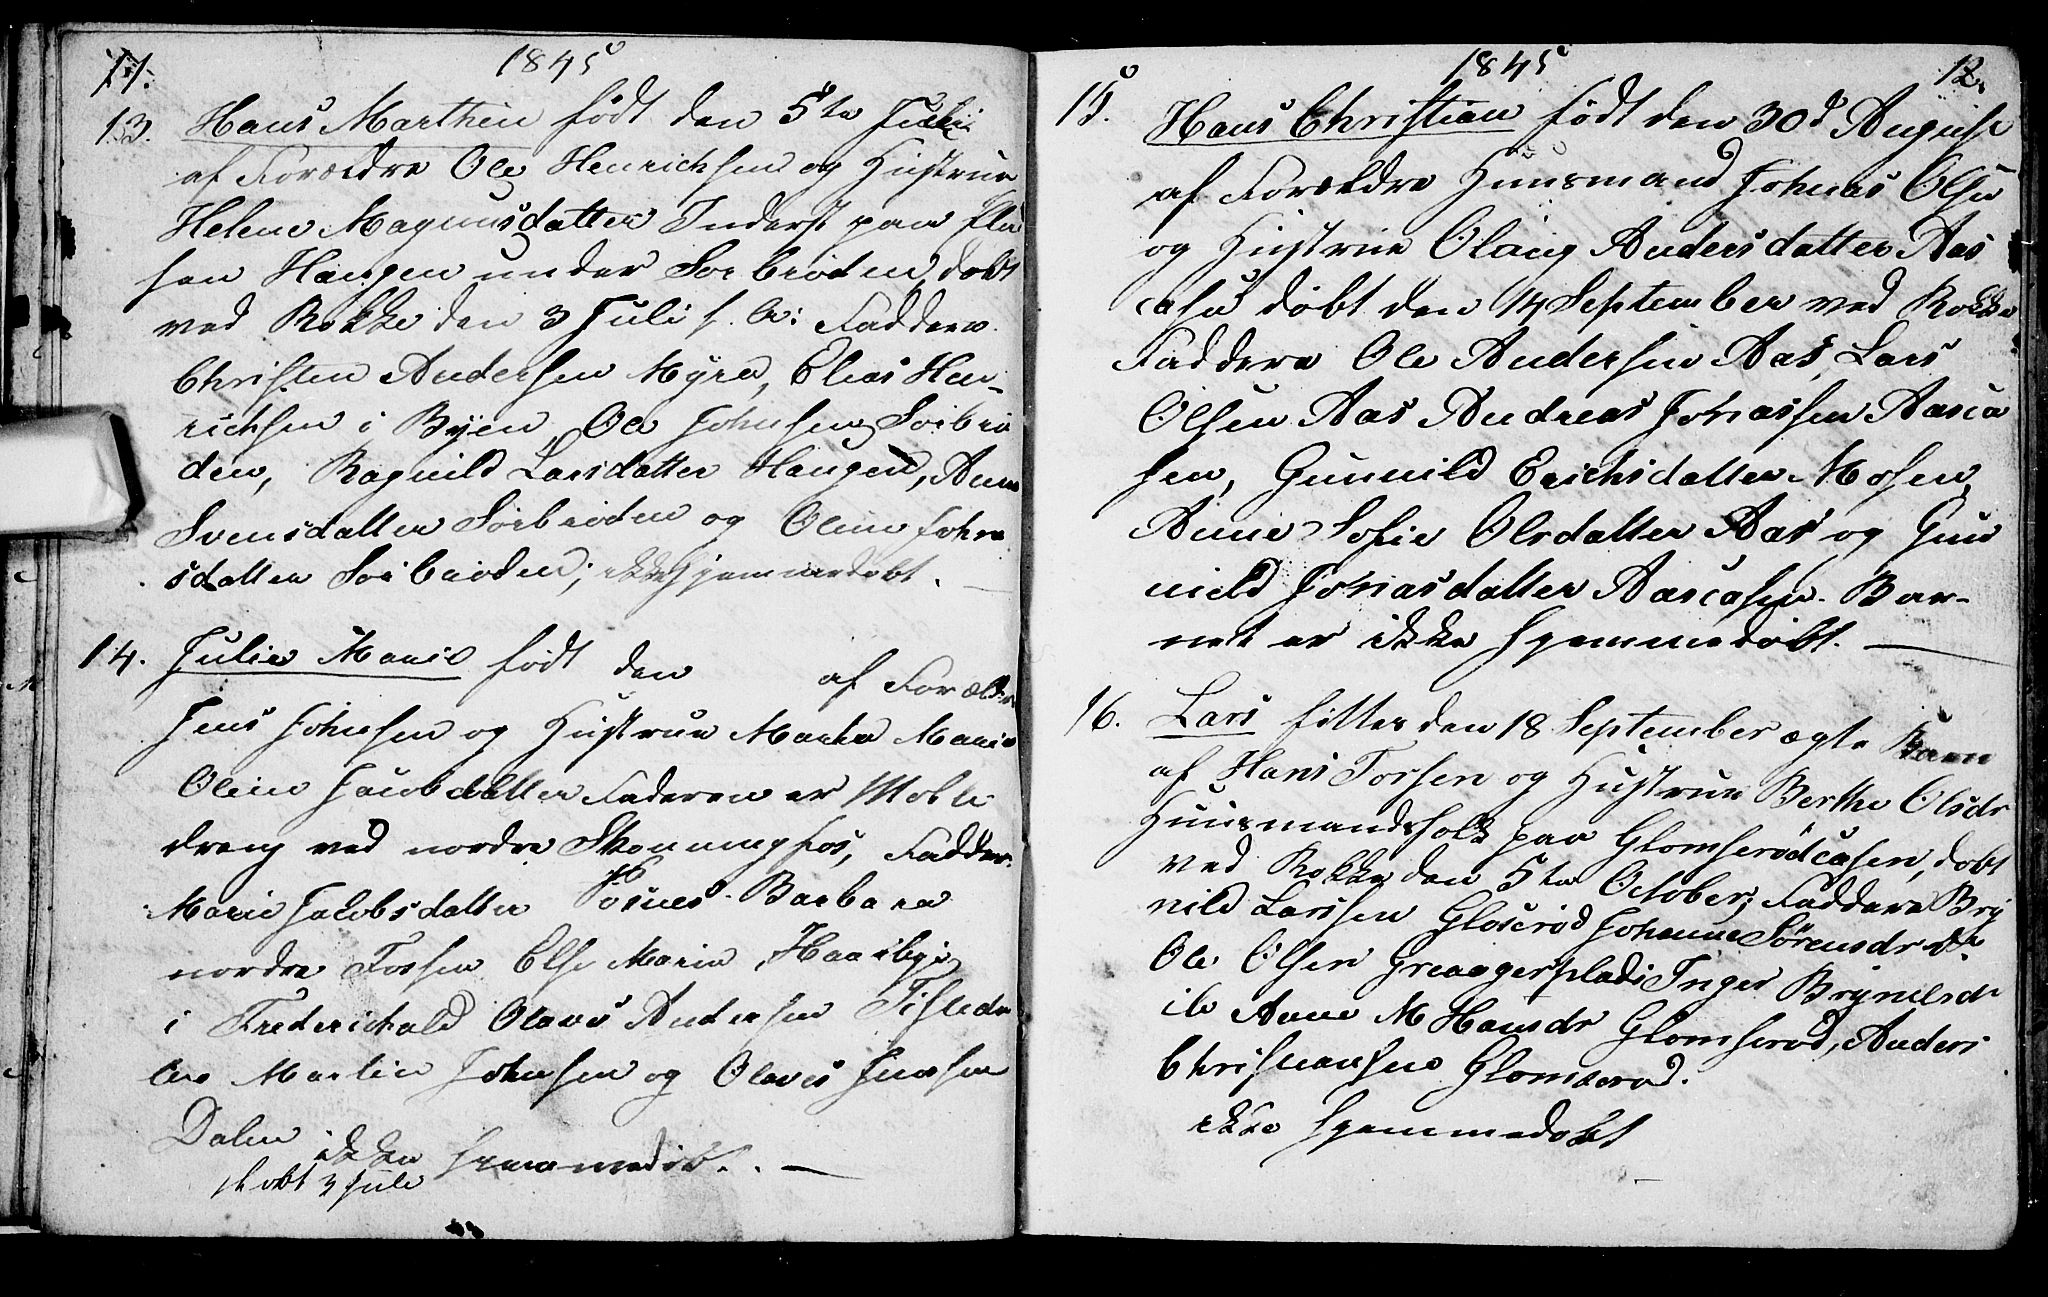 11.
1845
13. Hans Marthin født den 5te Juli
af Forældre Ole Henrichsen og Hustrue
Helene Magnusdatter Inderst paa Pla
sen Haugen under Sorbrøden, døbt
ved Rokke den 3 Juli s. A: Faddere
Christen Andersen Myre, Elias Hen-
richsen i Byen, Ole Johnsen Sørbrø
den, Ragnild Larsdatter Haugen, Anne
Svensdatter Sørbrøden og Oline Johne
sdatter Sørbrøden; ikke hjemmedøbt.
14. Julie Marie født den af Forældre
Jens Johnsen og Hustrue Marte Marie
Oline Jacobsdatter Faderen er Mølle
dreng ved nordre Skonningfos, Faddere
Marie Jacobsdatter Barbara
nordre Fossen Else Marie
i Frederichald Olaves Andersen Tistedal
len Martin Johnsen og Olaves Jensen
Dalen ikke hjemmedøbt. -
døbt 3 Juli
1845
12.
15. Hans Christian født den 30d August
af Forældre Huusmand Johnas Olsen
og Hustrue Olaug Andersdatter Aas
casen døbt den 14 September ved Rokke
Faddere Ole Andersen Aas, Lars
Olsen Aas Andreas Jonassen Aasca
sen, Gunnild Erichsdatter Mosen,
Anne Sofie Olsdatter Aas og Gun
nild Jonasdatter Aascasen. Bar-
net er ikke hjemmedøbt.
16. Lars fötter den 18 September ægte Barn
af Hans Torsen og Hustrue Berthe Olsdr
Huusmandsfolk paa Glomserødcasen, døbt
ved Rokke den 5te October, Faddere Bry
nild Larssen Gloserød Johanne Sørensdr
Ole Olsen Greaagerplads Inger Brynilsdr
Anne M Hansdr Glomserød, Anders
Christiansen Glomserød.
ikke hjemmedøbt